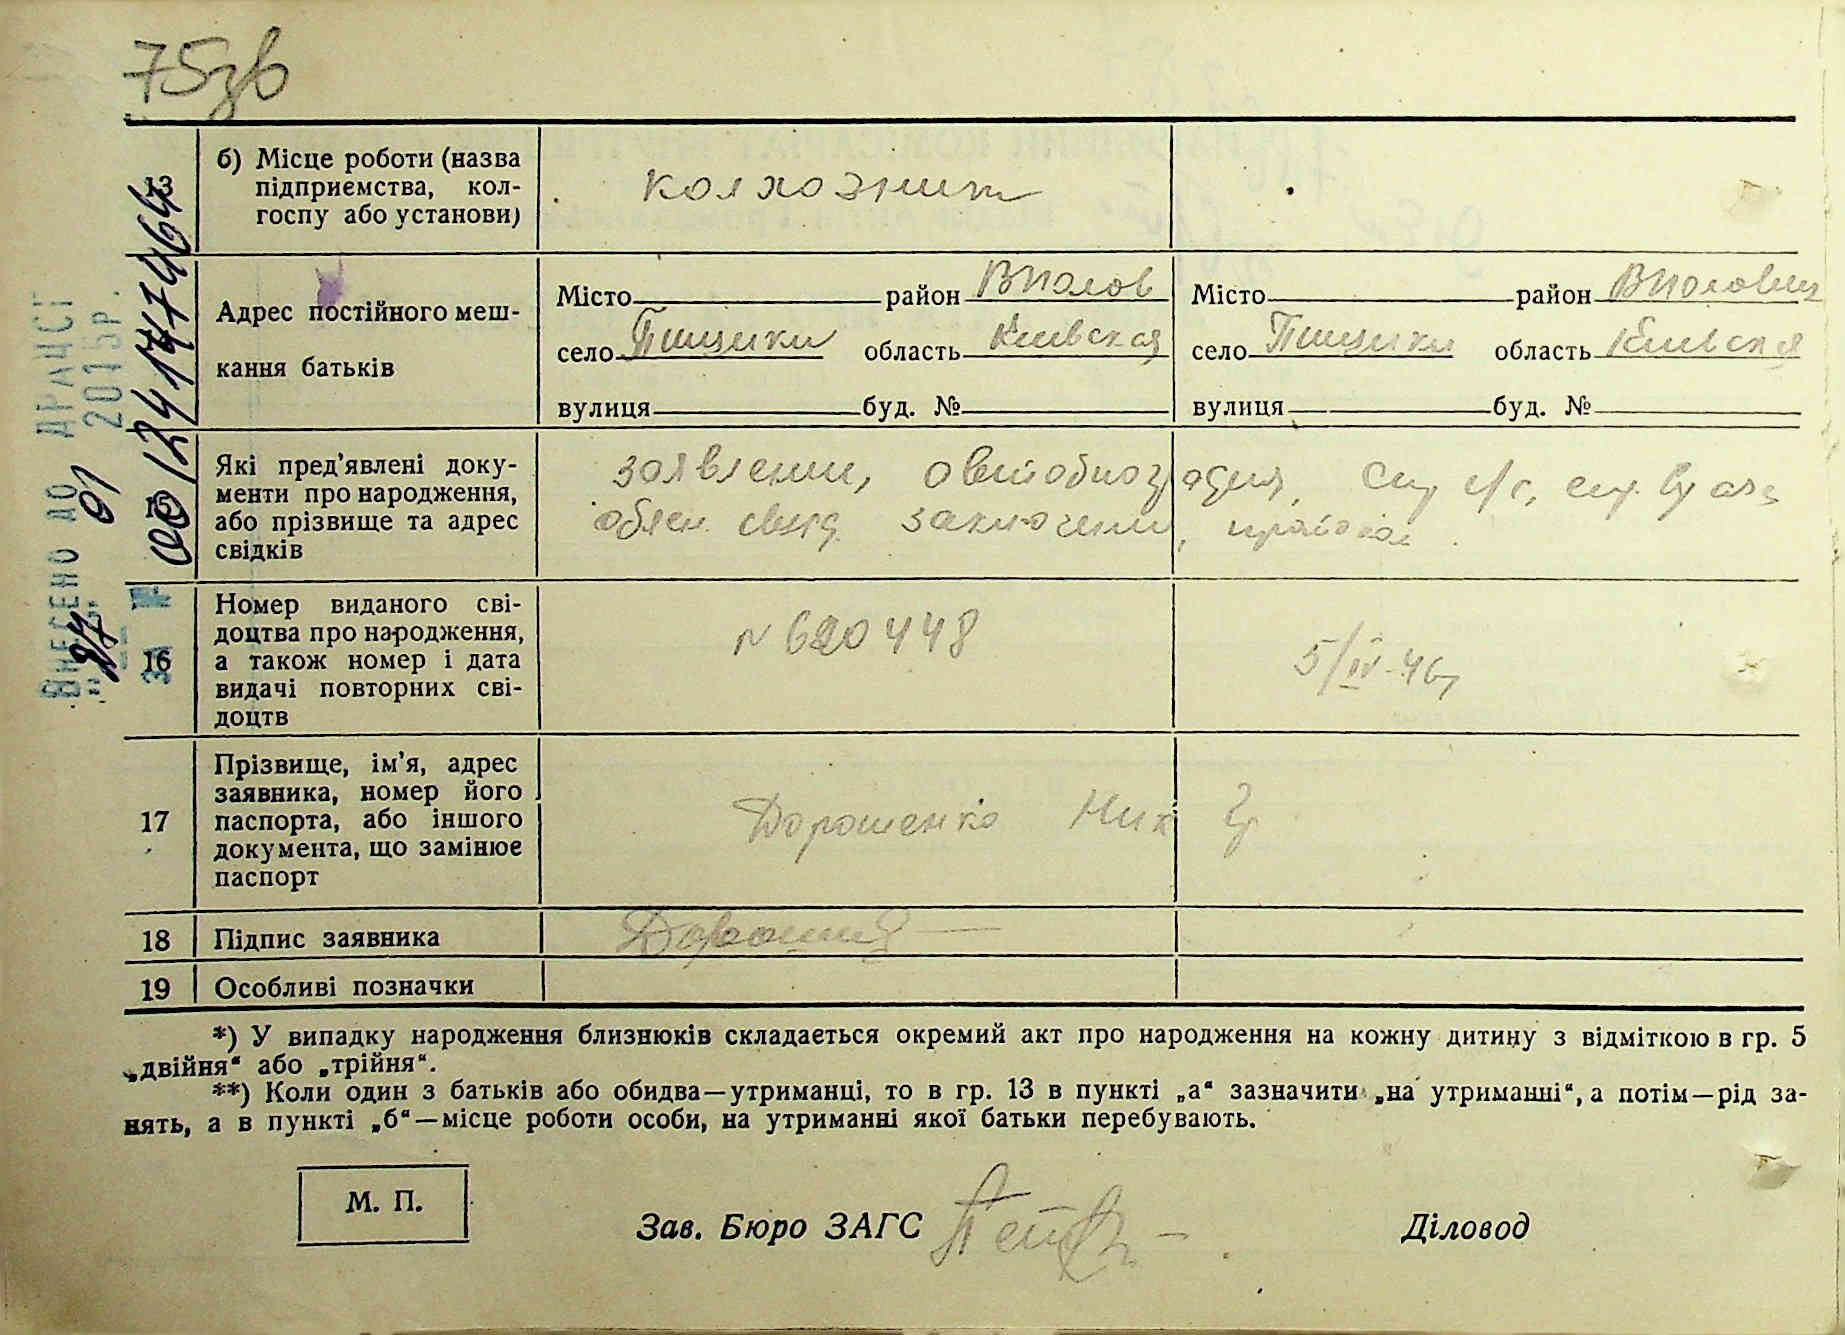 75зв
13
б) Місце роботи (назва
підприємства, кол-
госпу або установи)
колхозник
Адрес постійного меш-
кання батьків
Місто район ВПолов
село Пищики область Киевская
вулиця буд. №
Місто район ВПоловец
село Пищики область Киевская
вулиця буд. №
Які пред'явлені доку-
менти про народження,
або прізвище та адрес
свідків
заявлении,
заключении,
16
Номер виданого сві-
доцтва про народження,
а також номер і дата
видачі повторних сві-
доцтв
N 620448
5/IV-46
17
Прізвище, ім'я, адрес
заявника, номер його
паспорта, або іншого
документа, що замінює
паспорт
Дорошенко Ник Гр
18
Підпис заявника
19
Особливі позначки
*) У випадку народження близнюків складається окремий акт про народження на кожну дитину з відміткою в гр. 5
„двійня“ або „трійня“.
**) Коли один з батьків або обидва—утриманці, то в гр. 13 в пункті „а“ зазначити „на утриманні“, а потім—рід за-
нять, а в пункті „б“—місце роботи особи, на утриманні якої батьки перебувають.
М. П.
Зав. Бюро ЗАГС
Діловод
ВНЕСЕНО ДО ДРАЦСГ
"27" 01 2015р.
ЗА №